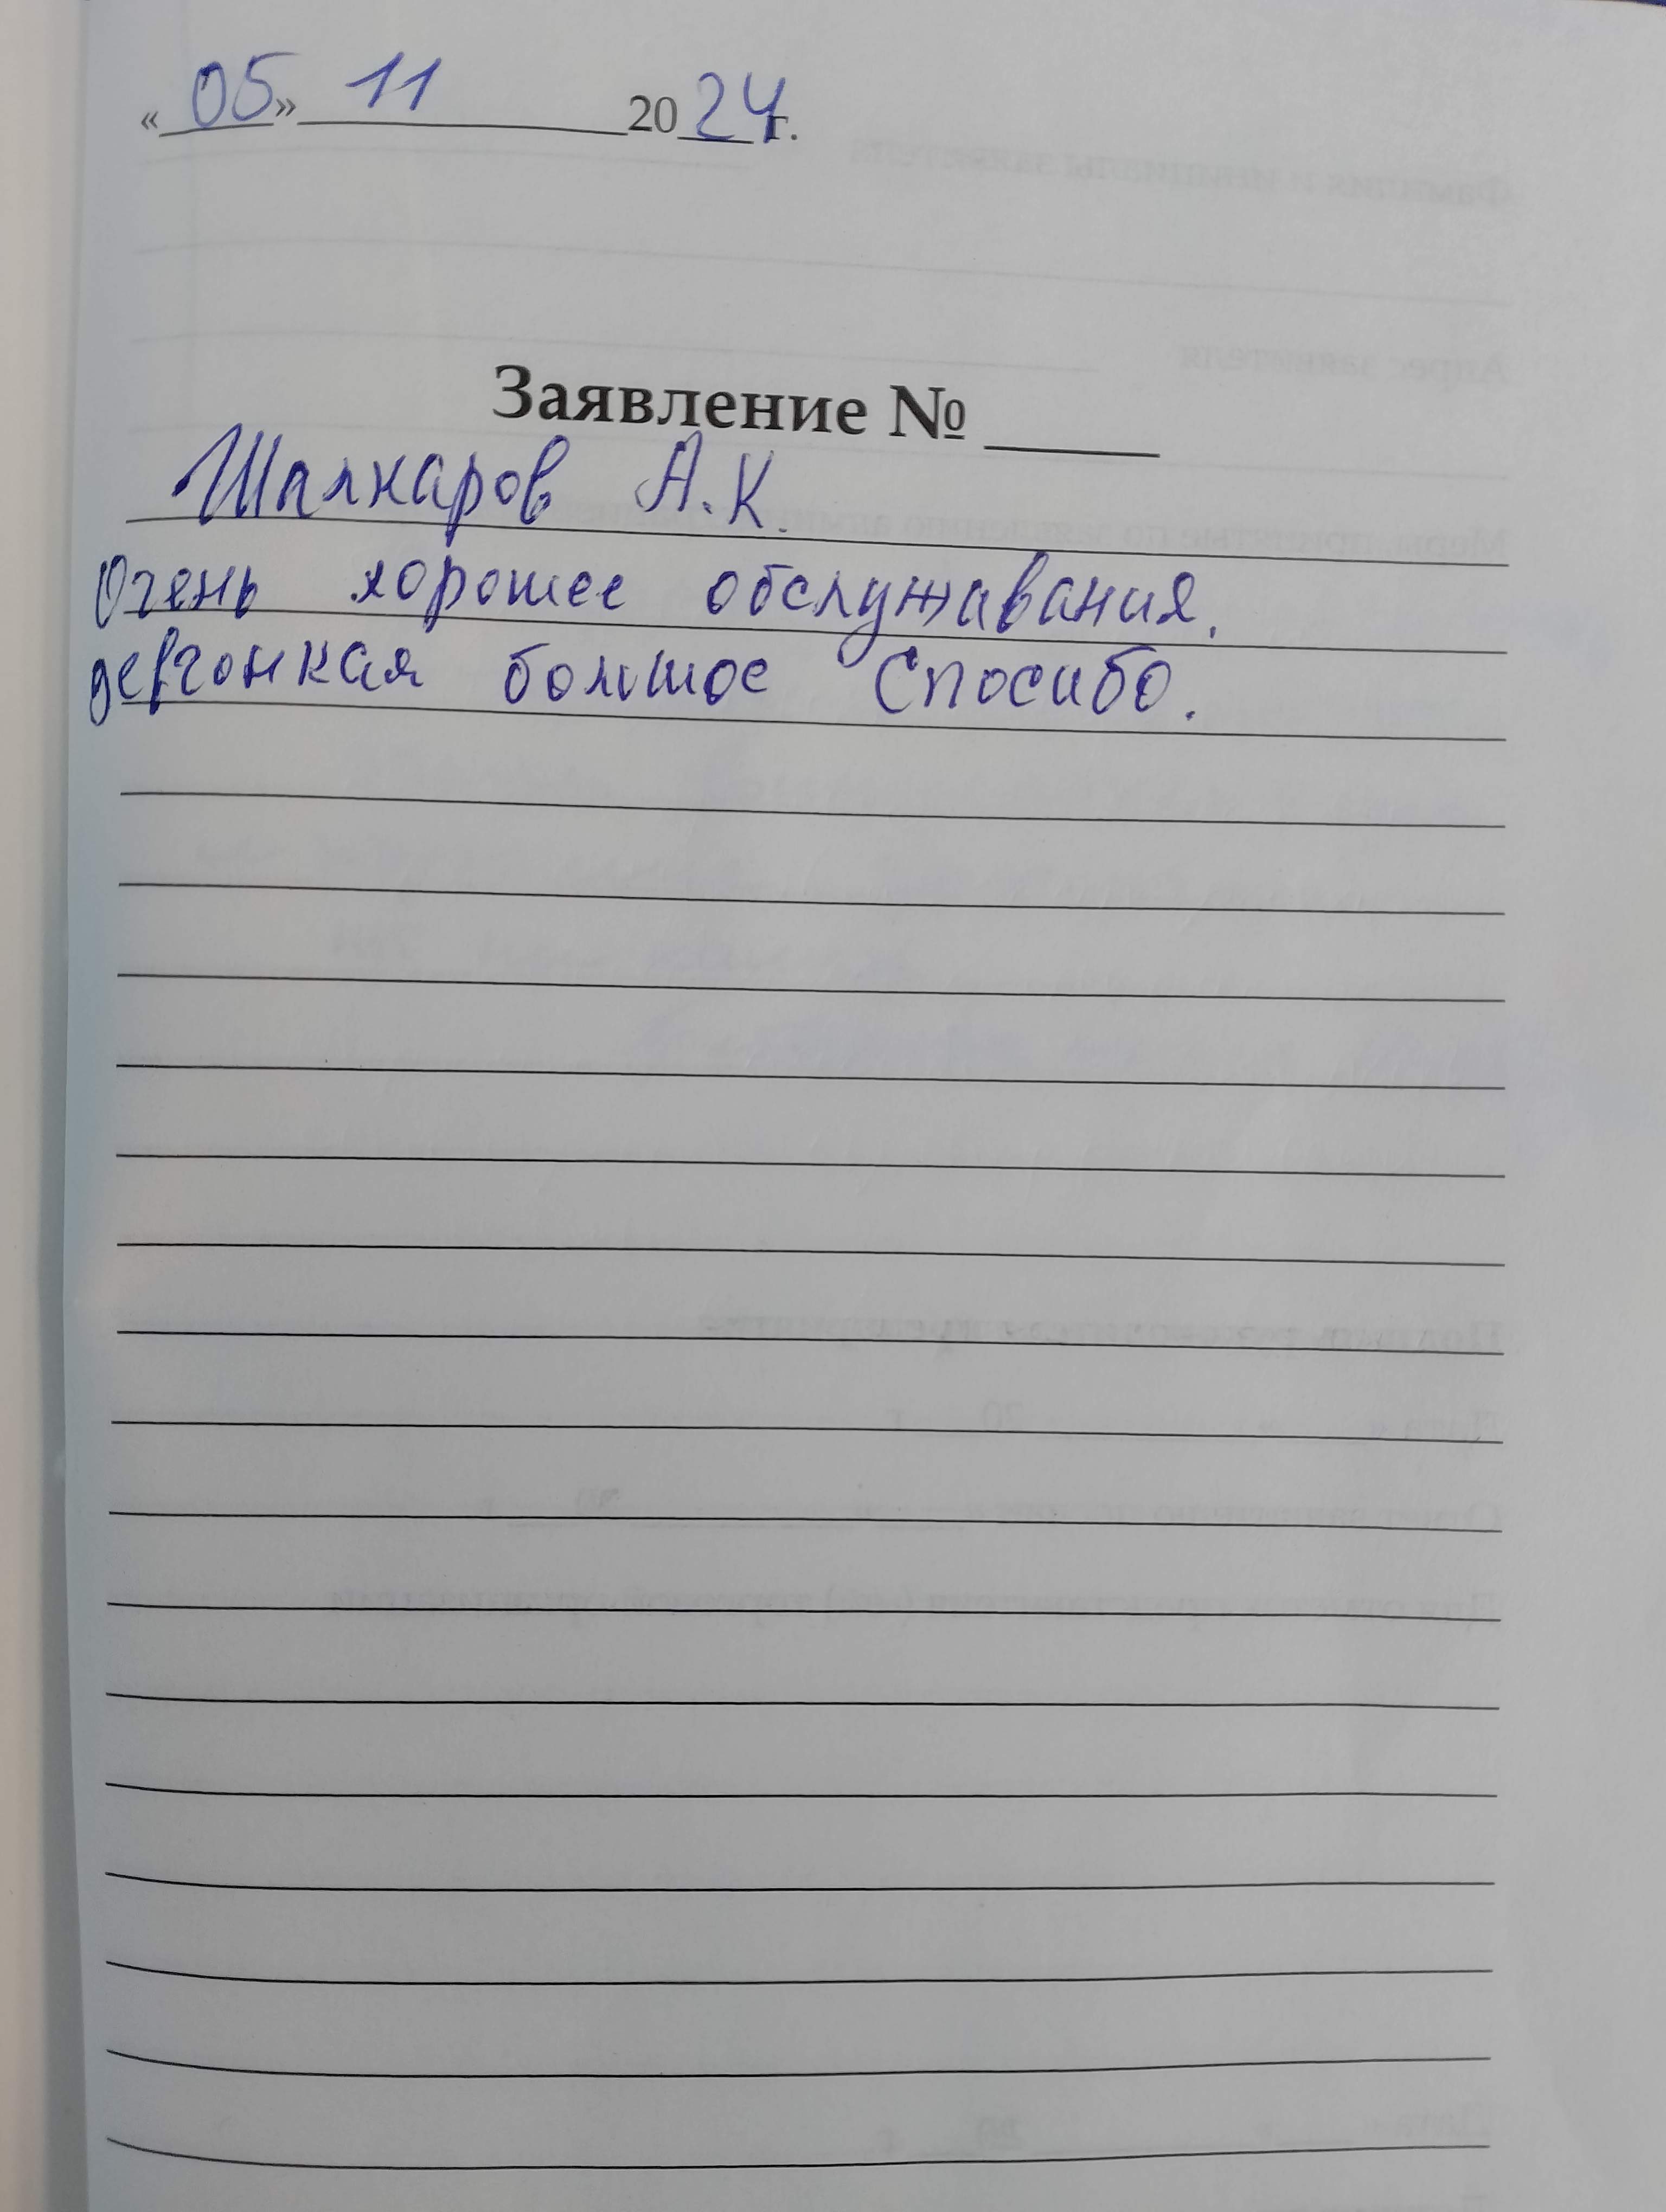 «05» 11 2024г.
Заявление №
Шалкаров А.К.
Очень хорошее обслужавания.
девчонкая большое Спосибо.